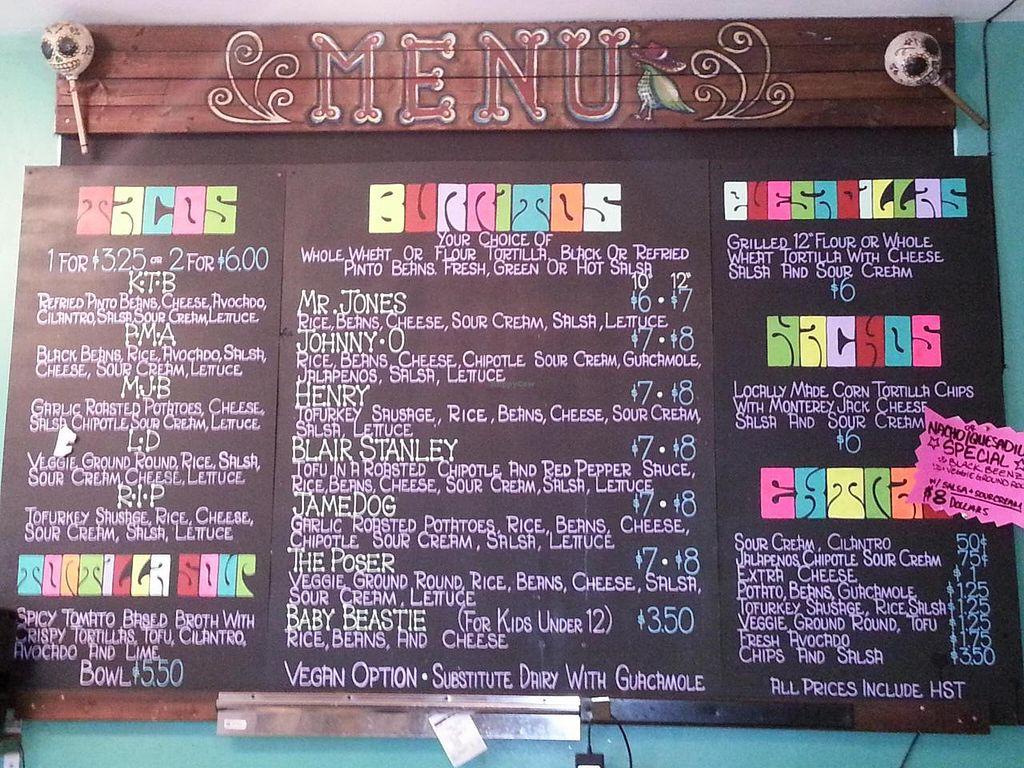 MENU
TACOS
1 FOR $3.25 OR 2 FOR $6.00
K·T·B
REFRIED PINTO BEANS, CHEESE, AVOCADO,
CILANTRO, SALSA, SOUR CREAM, LETTUCE
P.M.A
BLACK BEANS, RICE, AVOCADO, SALSA,
CHEESE, SOUR CREAM, LETTUCE
M·J·B
GARLIC ROASTED POTATOES, CHEESE,
SALSA, CHIPOTLE SOUR CREAM, LETTUCE
L·D
VEGGIE GROUND ROUND, RICE, SALSA,
SOUR CREAM, CHEESE, LETTUCE
R·I·P
TOFURKEY SAUSAGE, RICE, CHEESE,
SOUR CREAM, SALSA, LETTUCE
TORTILLA SOUP
SPICY TOMATO BASED BROTH WITH
CRISPY TORTILLAS, TOFU, CILANTRO,
AVOCADO AND LIME
BOWL $5.50
BURRITOS
YOUR CHOICE OF
WHOLE WHEAT OR FLOUR TORTILLA, BLACK OR REFRIED
PINTO BEANS. FRESH, GREEN OR HOT SALSA
10" 12"
MR. JONES $6 · $7
RICE, BEANS, CHEESE, SOUR CREAM, SALSA, LETTUCE
JOHNNY·O $7 · $8
RICE, BEANS, CHEESE, CHIPOTLE SOUR CREAM, GUACAMOLE,
JALAPENOS, SALSA, LETTUCE
HENRY $7 · $8
TOFURKEY SAUSAGE, RICE, BEANS, CHEESE, SOUR CREAM,
SALSA, LETTUCE
BLAIR STANLEY $7 · $8
TOFU IN A ROASTED CHIPOTLE AND RED PEPPER SAUCE,
RICE, BEANS, CHEESE, SOUR CREAM, SALSA, LETTUCE
JAMEDOG $7 · $8
GARLIC ROASTED POTATOES, RICE, BEANS, CHEESE,
CHIPOTLE SOUR CREAM, SALSA, LETTUCE
THE POSER $7 · $8
VEGGIE GROUND ROUND, RICE, BEANS, CHEESE, SALSA,
SOUR CREAM, LETTUCE
BABY BEASTIE (FOR KIDS UNDER 12) $3.50
RICE, BEANS, AND CHEESE
VEGAN OPTION · SUBSTITUTE DAIRY WITH GUACAMOLE
QUESADILLAS
GRILLED 12" FLOUR OR WHOLE
WHEAT TORTILLA WITH CHEESE
SALSA AND SOUR CREAM
$6
NACHOS
LOCALLY MADE CORN TORTILLA CHIPS
WITH MONTEREY JACK CHEESE
SALSA AND SOUR CREAM
$6
NACHO/QUESADIL
SPECIAL
BLACK BEENZ
VEGGIE GROUND RO
W/ SALSA + SOURCREAM
$8 DOLLARS
EXTRA
SOUR CREAM, CILANTRO 50¢
JALAPENOS, CHIPOTLE SOUR CREAM 75¢
EXTRA CHEESE $1
POTATO, BEANS, GUACAMOLE $1.25
TOFURKEY SAUSAGE, RICE, SALSA $1.25
VEGGIE GROUND ROUND, TOFU $1.25
FRESH AVOCADO $1.75
CHIPS AND SALSA $3.50
ALL PRICES INCLUDE HST